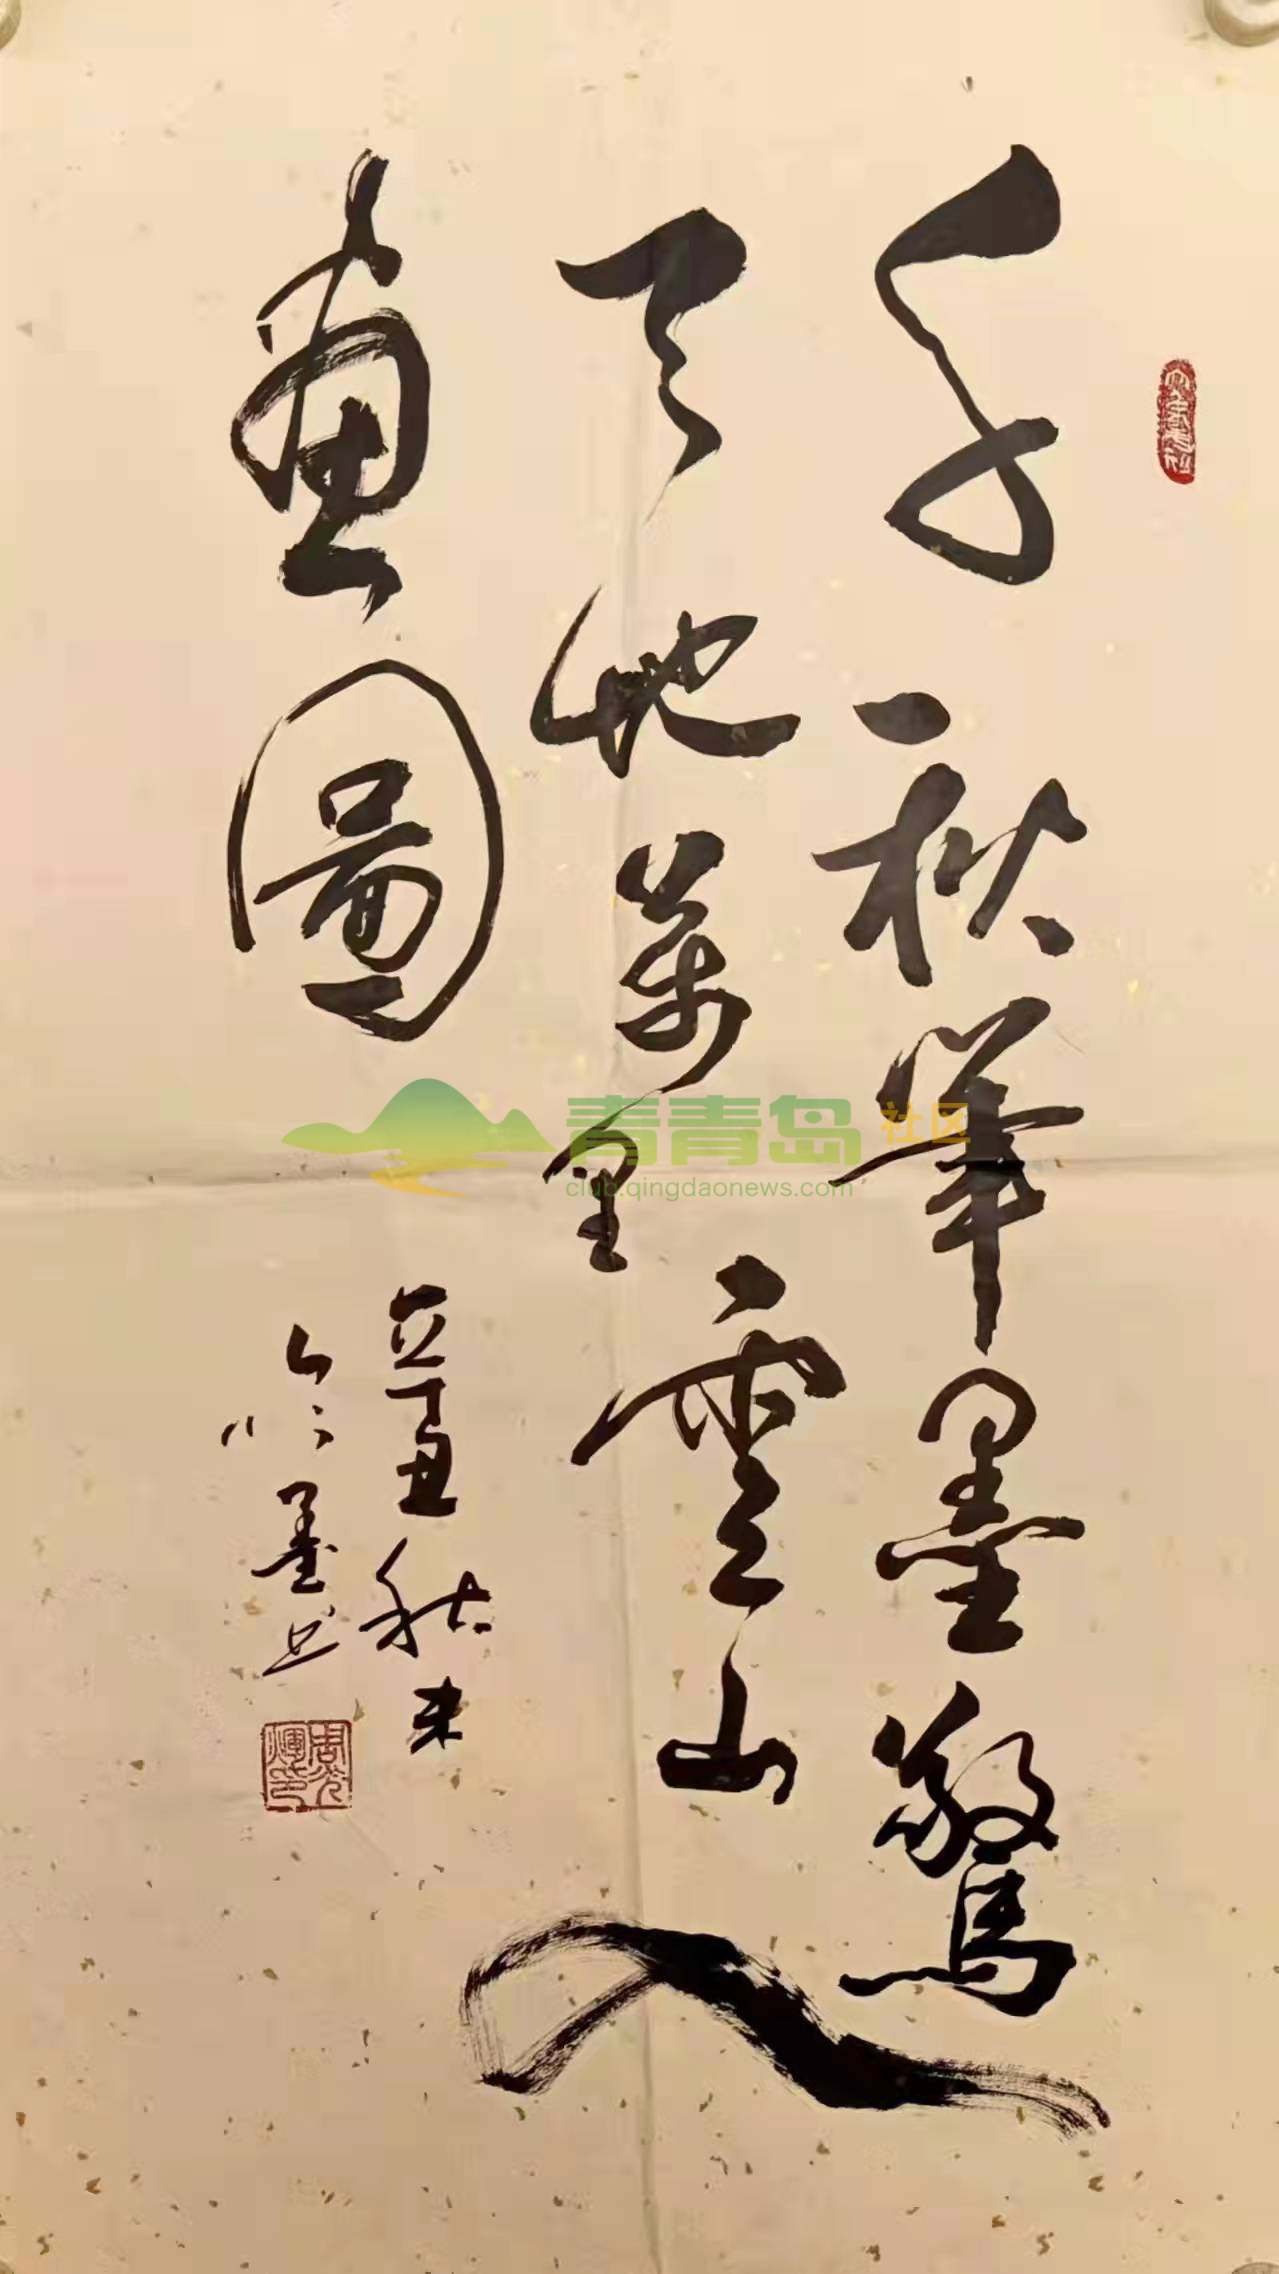 千秋筆墨驚
天地萬里雲山入
畫圖
辛丑秋末
墨书
周光輝印
青青岛社区
club.qingdaonews.com